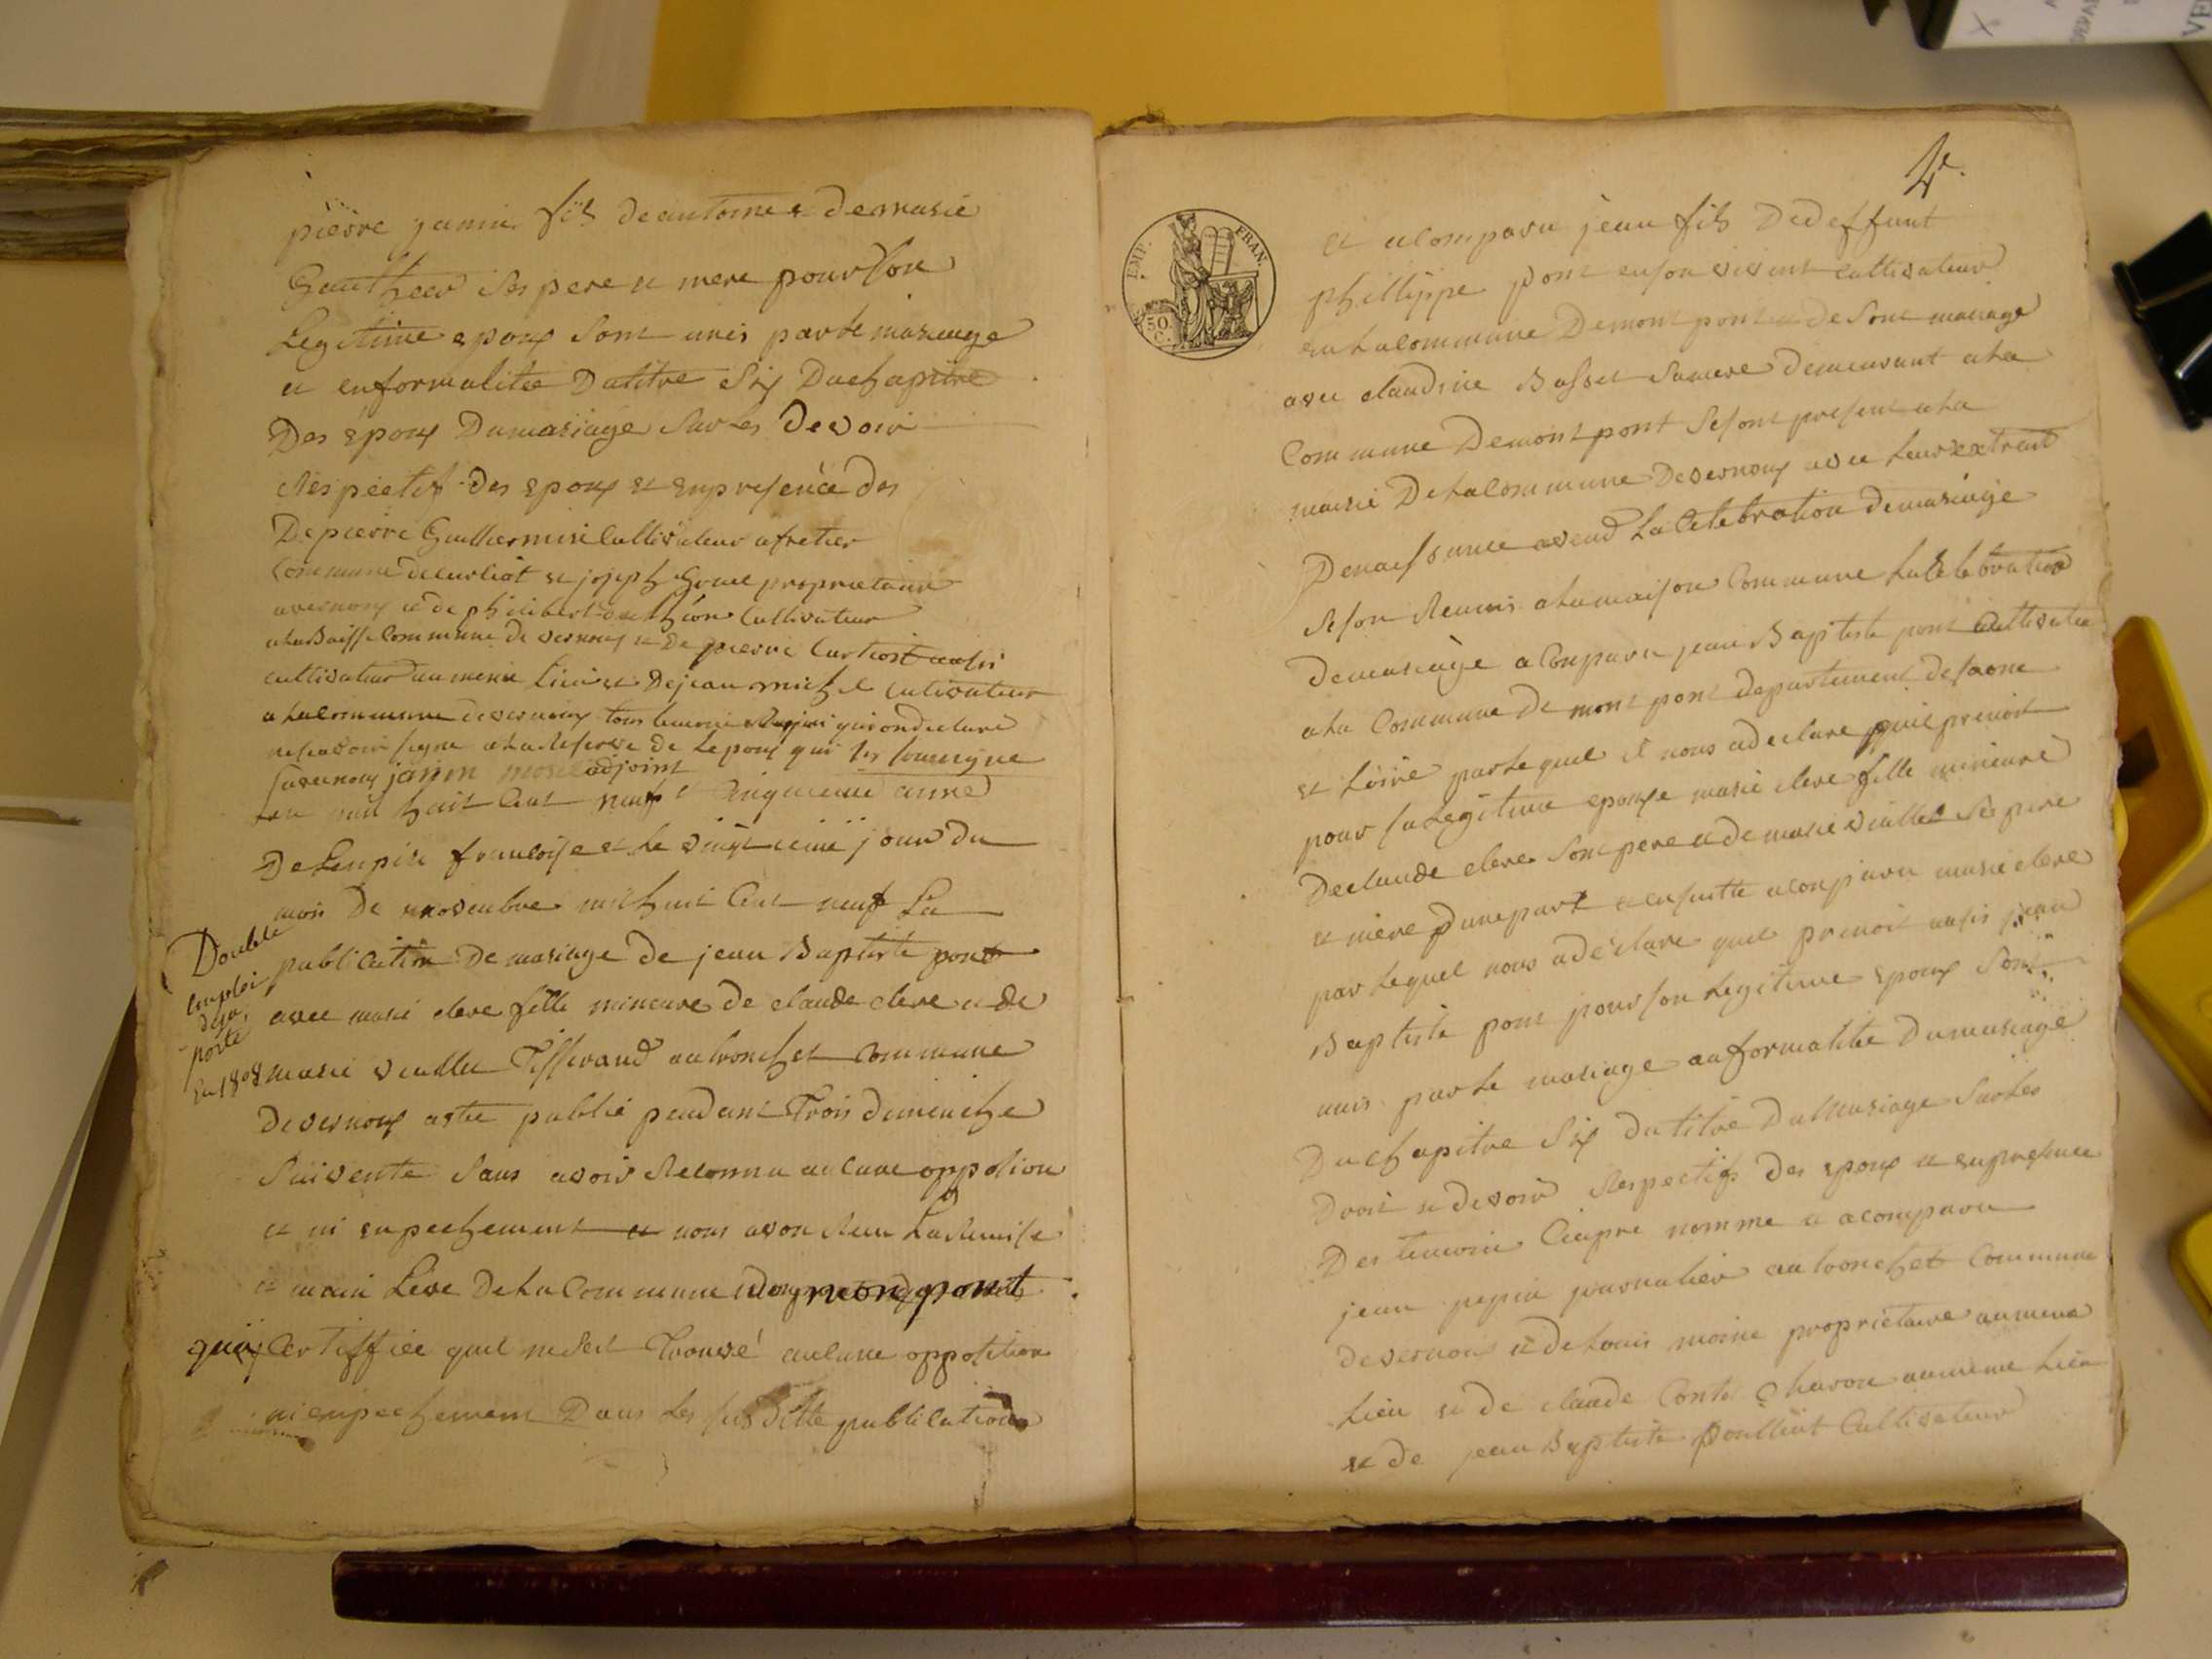 pierre janin fils de antoine & de marie
Gauthier ses pere et mere pour son
Legitime epoux sont unis par le mariage
et en formalitee du titre Six Du chapitre
Des epoux Du mariage sur les Devoir
Respectif Des epoux et en presence des
De pierre Guillermin Cultivateur a fretier
Commune de curliat et joseph Grue propriétaire
avernoux et de philibert cultivateur
a la Baisse Commune de vernoux et De pierre Curliost aussi
cultivateur au meme Lieu et De jean michel cultivateur
a la commune de vernoux tous temoins qui on declare
ne savoir signe a la Reserve de Lepoux qui les soussigne
a vernoux janin morel adjoint
Lan mil huit Cent neuf & Cinquieme anné
De Lenpire francoise et le vingtieme jour du
mois De novenbre mil huit Cent neuf La
publication De mariage de jean Baptiste pont
avec marie clere fille mineure de claude clere et de
marie viallet Tisserand au tronchet commune
de vernoux a ete publié pendant Trois dimenche
Suivente sans avoir Reconnu aucune oppotion
et ni enpechement et nous avon Recu La Remise
et main Leve De la Commune mont pont
qui Certiffiée quil ne sest Trouvé aucune oppotition
ni enpechement Dans les susditte publication
Double
emploi
deja
porté
en 1808
4e.
EMP. FRAN.
50
C.
et a comparu jean fils De deffunt
phillippe pont en son vivent cultivateur
en la commune De mont pont et de sont mariage
avec claudine Basset sa mere demeurant a la
Commune De mont pont se sont present a la
mairie De la Commune De vernoux avec leur extrait
De naissance avend La Celebration de mariage
se son Reunis a la maison Commune La Celebration
de mariage a Conparu jean Baptiste pont Cultivateur
a la Commune De mont pont departement de saone
et Loire par le quel il nous a declare quil prenoit
pour sa Legitime epouse marie clere fille mineure
De claude clere son pere et de marie viallet ses pere
et mere dune part et ensuitte a conparu marie clere
par lequel nous a declare quel prenoit aussi jean
Baptiste pont pour son Legitime epoux Sont
unis par le mariage au formalitée Du mariage
Du chapitre Six du titre Du Mariage sur les
Droit et devoir Respectifs des epoux et en presence
Des temoin Ciapre nomme et a comparu
jean pepin journalier au tronchet Commune
de vernoux et de Louis moine proprietaire au meme
Lieu et de claude Conte Charon au meme Lieu
et de jean Baptiste poullint Cultivateur